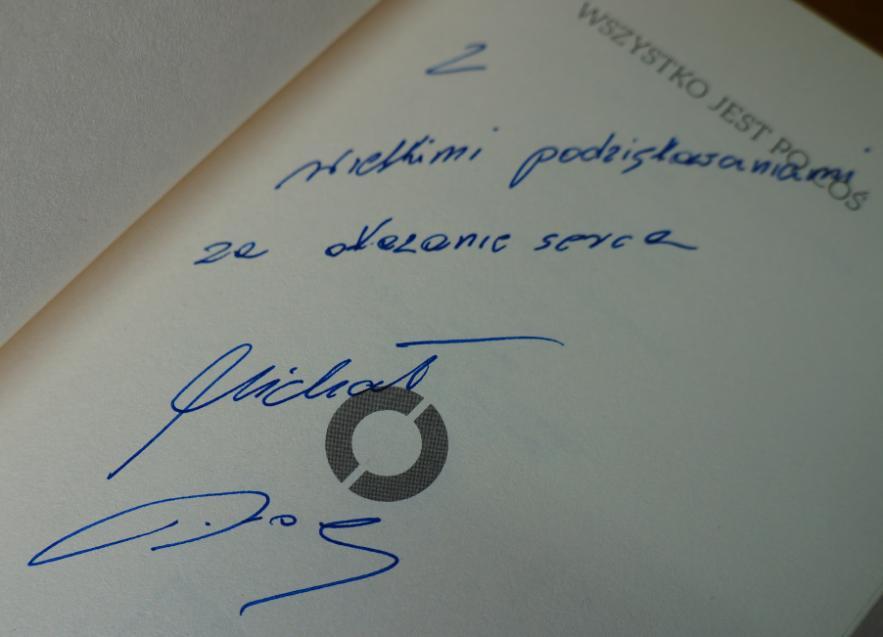 WSZYSTKO JEST PO COŚ
Z
wielkimi podziękowaniami
za okazanie serca
Michał